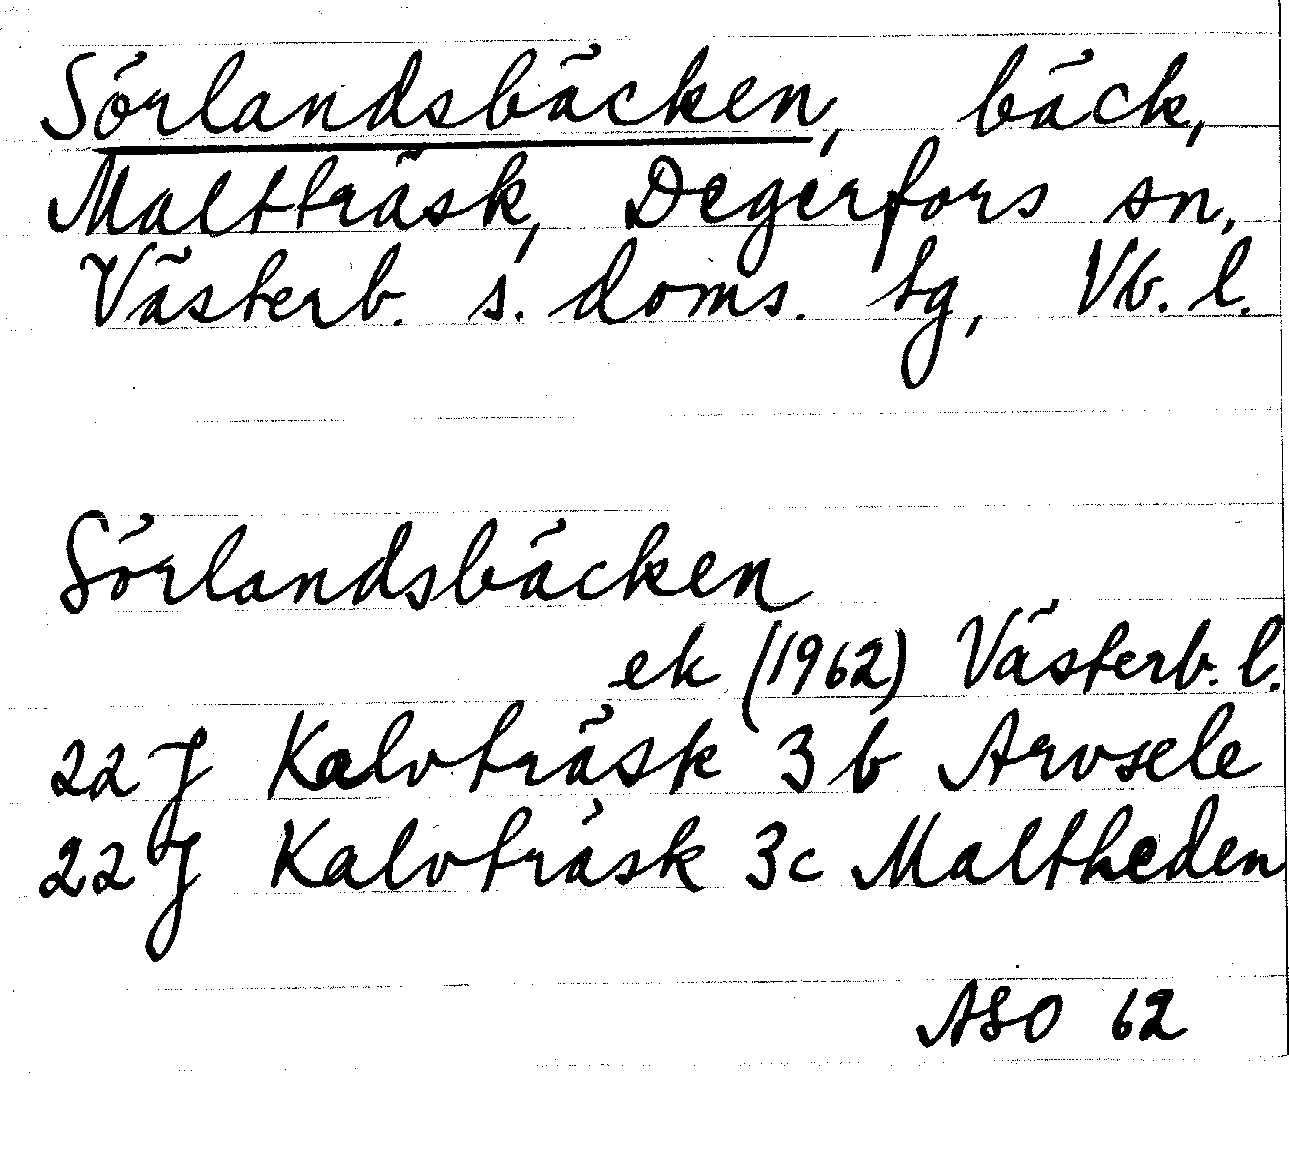 Sörlandsbäcken, bäck,
Malträsk, Degerfors sn,
Västerb. s. doms. tg, Vb. l.
Sörlandsbäcken
ek (1962) Västerb. l.
22 J Kalvträsk 3 b Arvsele
22 J Kalvträsk 3c Maltheden
ASO 62